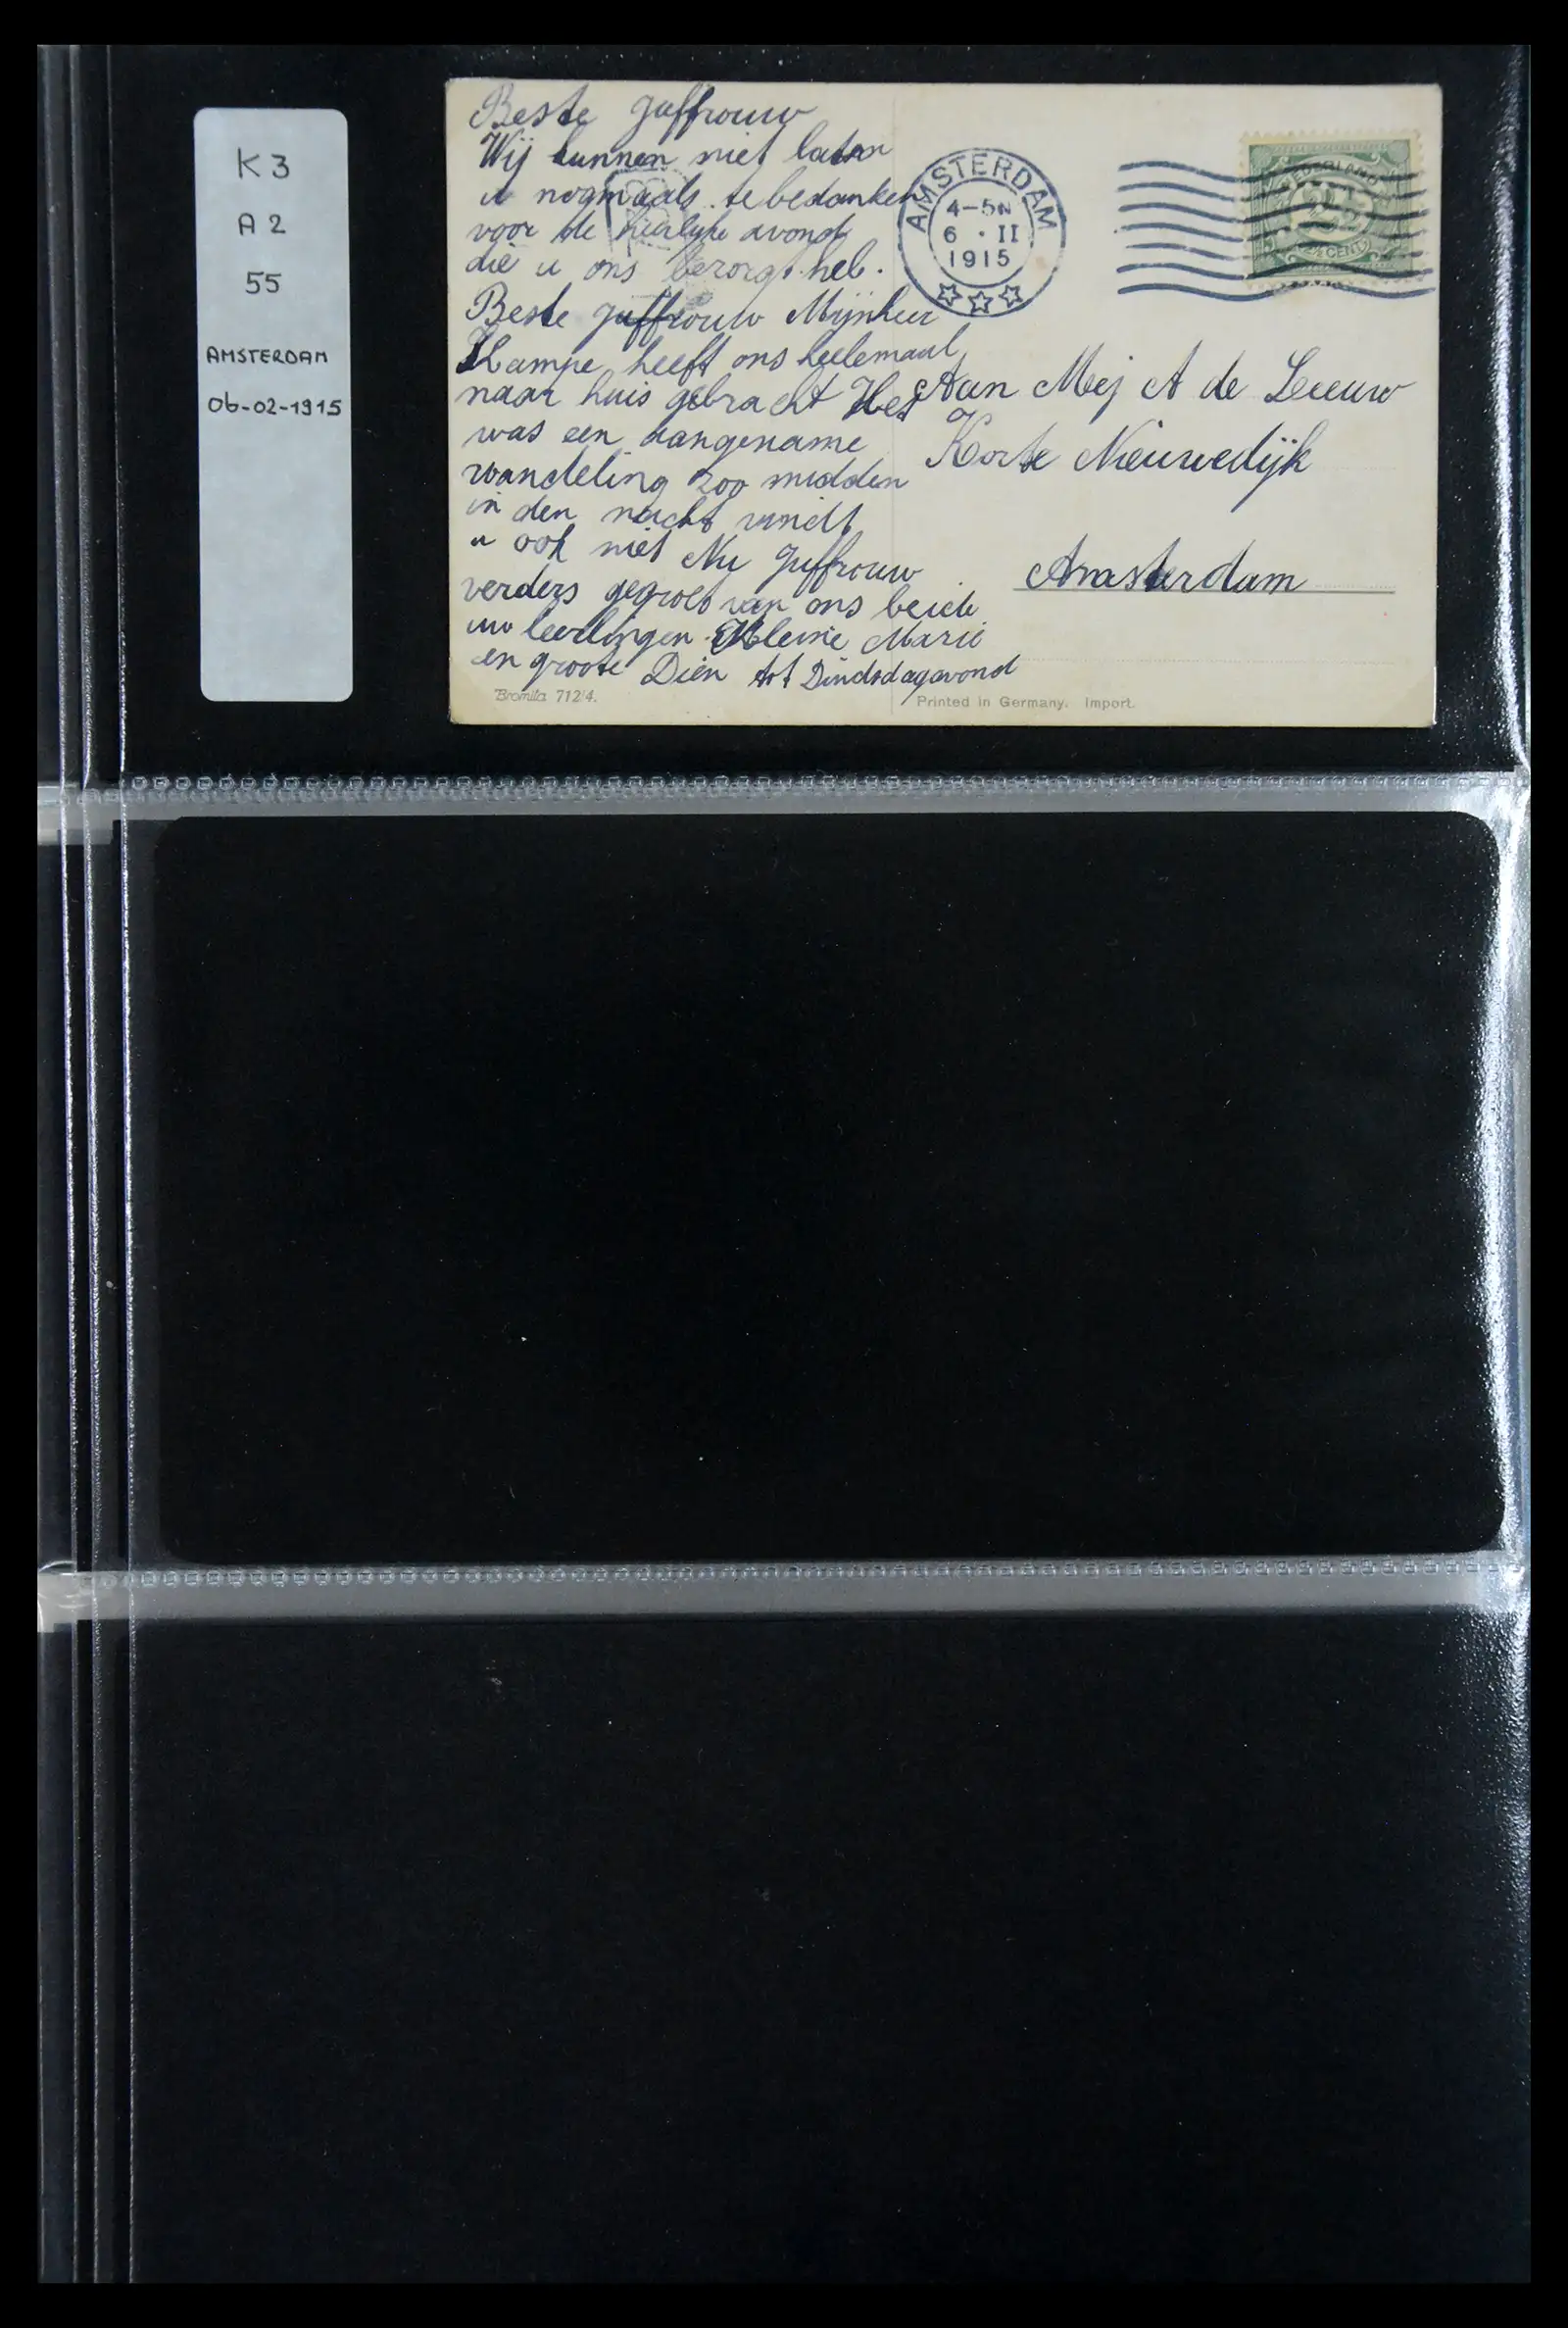 K 3
A 2
55
AMSTERDAM
06-02-1915
Beste juffrouw
Wij kunnen niet laten
u nogmaals te bedanken
voor de heerlyke avond
die u ons bezorgt heb.
Beste juffrouw Mijnheer
Kampe heeft ons heelemaal
naar huis gebracht Het
was een aangename
wandeling zoo midden
in den nacht vindt
u ook niet Nu Juffrouw
verders gegroet van ons beide
uw leerlingen Kleine Marie
en groote Dien tot Dindsdagavond
AMSTERDAM
4-5N
6 · II
1915
NEDERLAND
2½ CENT
Aan Mej A de Leeuw
Korte Nieuwedijk
Amsterdam
Bromila 712/4.
Printed in Germany. Import.